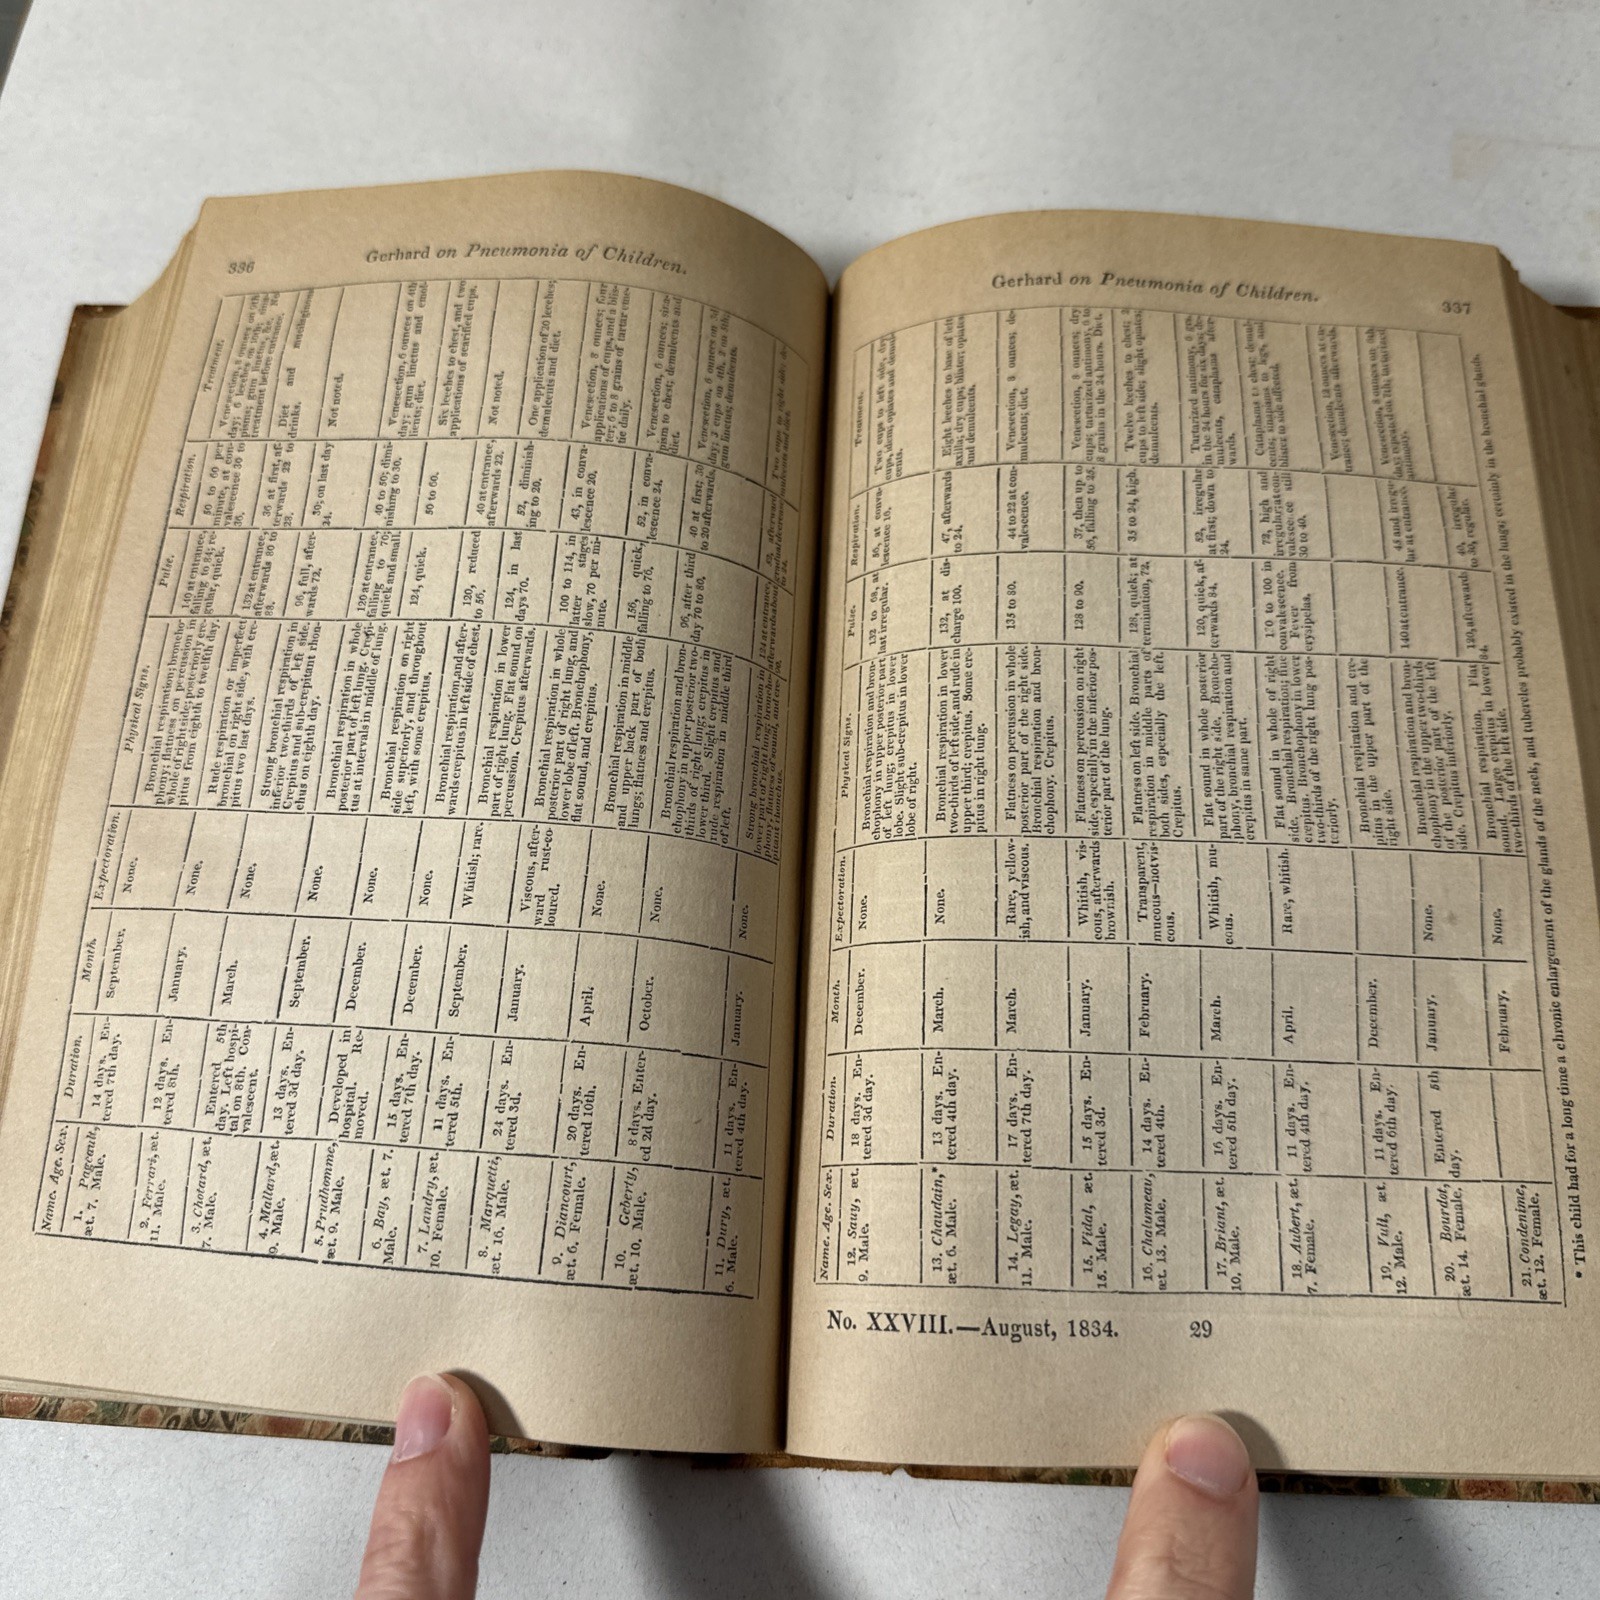 336
Gerhard on Pneumonia of Children.
Name. Age. Sex.
Duration.
Month.
Expectoration.
Physical Signs.
Pulse.
Respiration.
Treatment.
1. Pageault,
æt. 7. Male.
14 days. En-
tered 7th day.
September.
None.
Bronchial respiration; broncho-
phony; flatness on percussion in
whole of right side; posteriorly cre-
pitus from eighth to twelfth day.
140 at entrance,
falling to 84; re-
gular, quick.
50 to 60 per
minute, at con-
valescence 30 to
36.
2. Ferrari, æt.
11. Male.
12 days. En-
tered 8th.
January.
None.
Rude respiration or imperfect
bronchial on right side, with cre-
pitus two last days.
132 at entrance,
afterwards 80 to
88.
36 at first, af-
terwards 22 to
28.
Diet and mucilaginous
drinks.
3. Chotard, æt.
7. Male.
Entered 5th
day. Left hospi-
tal on 8th. Con-
valescent.
March.
None.
Strong bronchial respiration in
inferior two-thirds of left side.
Crepitus and sub-crepitant rhon-
chus on eighth day.
96, full, after-
wards 72.
30; on last day
24.
Not noted.
4. Mallard, æt.
9. Male.
13 days. En-
tered 3d day.
September.
None.
Bronchial respiration in whole
posterior part of left lung. Crepi-
tus at intervals in middle of lung.
120 at entrance,
falling to 70;
quick and small.
40 to 50; dimi-
nishing to 30.
Venesection, 6 ounces on 4th
day; gum linctus and emol-
lients; diet.
5. Prudhomme,
æt. 9. Male.
Developed in
hospital. Re-
moved.
December.
None.
Bronchial respiration on right
side superiorly, and throughout
left, with some crepitus.
124, quick.
50 to 60.
Six leeches to chest, and two
applications of scarified cups.
6. Bay, æt. 7.
Male.
15 days. En-
tered 7th day.
December.
None.
Bronchial respiration, and after-
wards crepitus in left side of chest.
120, reduced
to 56.
40 at entrance,
afterwards 22.
Not noted.
7. Landry, æt.
10. Female.
11 days. En-
tered 5th.
September.
Whitish; rare.
Bronchial respiration in lower
part of right lung. Flat sound on
percussion. Crepitus afterwards.
124, in last
days 70.
52, diminish-
ing to 20.
One application of 20 leeches;
demulcents and diet.
8. Marquetti,
æt. 16. Male.
24 days. En-
tered 3d.
January.
Viscous, after-
ward rust-co-
loured.
Bronchial respiration in whole
posterior part of right lung, and
lower lobe of left. Bronchophony,
flat sound, and crepitus.
100 to 114, in
latter stages
slow, 70 per mi-
nute.
43, in conva-
lescence 20.
Venesection, 8 ounces; four
applications of cups, and a blis-
ter; 6 to 8 grains of tartar eme-
tic daily.
9. Diancourt,
æt. 6. Female.
20 days. En-
tered 10th.
April.
None.
Bronchial respiration in middle
and upper back part of both
lungs; flatness and crepitus.
156, quick,
falling to 76.
52, in conva-
lescence 24.
Venesection, 6 ounces; sina-
pism to chest; demulcents and
diet.
10. Geberty,
æt. 10. Male.
8 days. Enter-
ed 2d day.
October.
None.
Bronchial respiration and bron-
chophony in upper posterior two-
thirds of right lung; crepitus in
lower third. Slight crepitus and
rude respiration in middle third
of left.
96, after third
day 70 to 80.
40 at first; 30
to 20 afterwards.
11. Dury, æt.
6. Male.
11 days. En-
tered 4th day.
January.
None.
Strong bronchial respiration in
Gerhard on Pneumonia of Children.
337
Name. Age. Sex.
Duration.
Month.
Expectoration.
Physical Signs.
Pulse.
Respiration.
Treatment.
12. Savy, æt.
9. Male.
18 days. En-
tered 3d day.
December.
None.
Bronchial respiration and bron-
chophony in upper posterior part
of left lung; crepitus in lower
lobe. Slight sub-crepitus in lower
lobe of right.
132 to 98, at
last irregular.
56, at conva-
lescence 16.
13. Chaudain,*
æt. 6. Male.
13 days. En-
tered 4th day.
March.
None.
Bronchial respiration in lower
two-thirds of left side, and rude in
upper third; crepitus. Some cre-
pitus in right lung.
132, at dis-
charge 100.
47, afterwards
to 24.
Eight leeches to base of left
axilla; dry cups; blister; opiates
and demulcents.
14. Legay, æt.
11. Male.
17 days. En-
tered 7th day.
March.
Rare, yellow-
ish, and viscous.
Flatness on percussion in whole
posterior part of the right side.
Bronchial respiration and bron-
chophony. Crepitus.
135 to 80.
44 to 22 at con-
valescence.
Venesection, 8 ounces; de-
mulcents; diet.
15. Vidal, æt.
15. Male.
15 days. En-
tered 3d.
January.
Whitish, vis-
cous, afterwards
brownish.
Flatness on percussion on right
side, especially in the inferior pos-
terior part of the lung.
128 to 90.
37, then up to
50, falling to 25.
Venesection, 8 ounces; dry
cups; tartarized antimony, 6 to
8 grains in the 24 hours. Diet.
16. Chalumeau,
æt. 13. Male.
14 days. En-
tered 4th.
February.
Transparent,
mucous—not vis-
cous.
Flatness on left side. Bronchial
respiration in middle parts of
both sides, especially the left.
Crepitus.
128, quick; at
termination, 72.
35 to 24, high.
Twelve leeches to chest; 3
cups to left side; slight opiates;
demulcents.
17. Briant, æt.
10. Male.
16 days. En-
tered 5th day.
March.
Whitish, mu-
cous.
Flat sound in whole posterior
part of the right side. Broncho-
phony, bronchial respiration and
crepitus in same part.
120, quick, af-
terwards 84.
52, irregular
at first; down to
24.
18. Aubert, æt.
7. Female.
11 days. En-
tered 4th day.
April.
Rare, whitish.
Flat sound in whole of right
side. Bronchial respiration; fine
crepitus. Bronchophony in lower
two-thirds of the right lung pos-
teriorly.
170 to 100 in
convalescence.
Fever from
erysipelas.
72, high and
irregular at con-
valescence still
30 to 40.
19. Vuill, æt.
12. Male.
11 days. En-
tered 6th day.
December.
Bronchial respiration and cre-
pitus in the upper part of the
right side.
140 at entrance.
20. Bourdot,
æt. 14. Female.
Entered 5th
day.
January.
None.
Bronchial respiration and bron-
chophony in the upper two-thirds
of the posterior part of the left
side. Crepitus inferiorly.
120, afterwards
84.
21. Condenime,
æt. 12. Female.
February.
None.
Bronchial respiration. Flat
sound. Large crepitus in lower
two-thirds of the left side.
* This child had for a long time a chronic enlargement of the glands of the neck, and tubercles probably existed in the lungs; certainly in the bronchial glands.
No. XXVIII.—August, 1834. 29